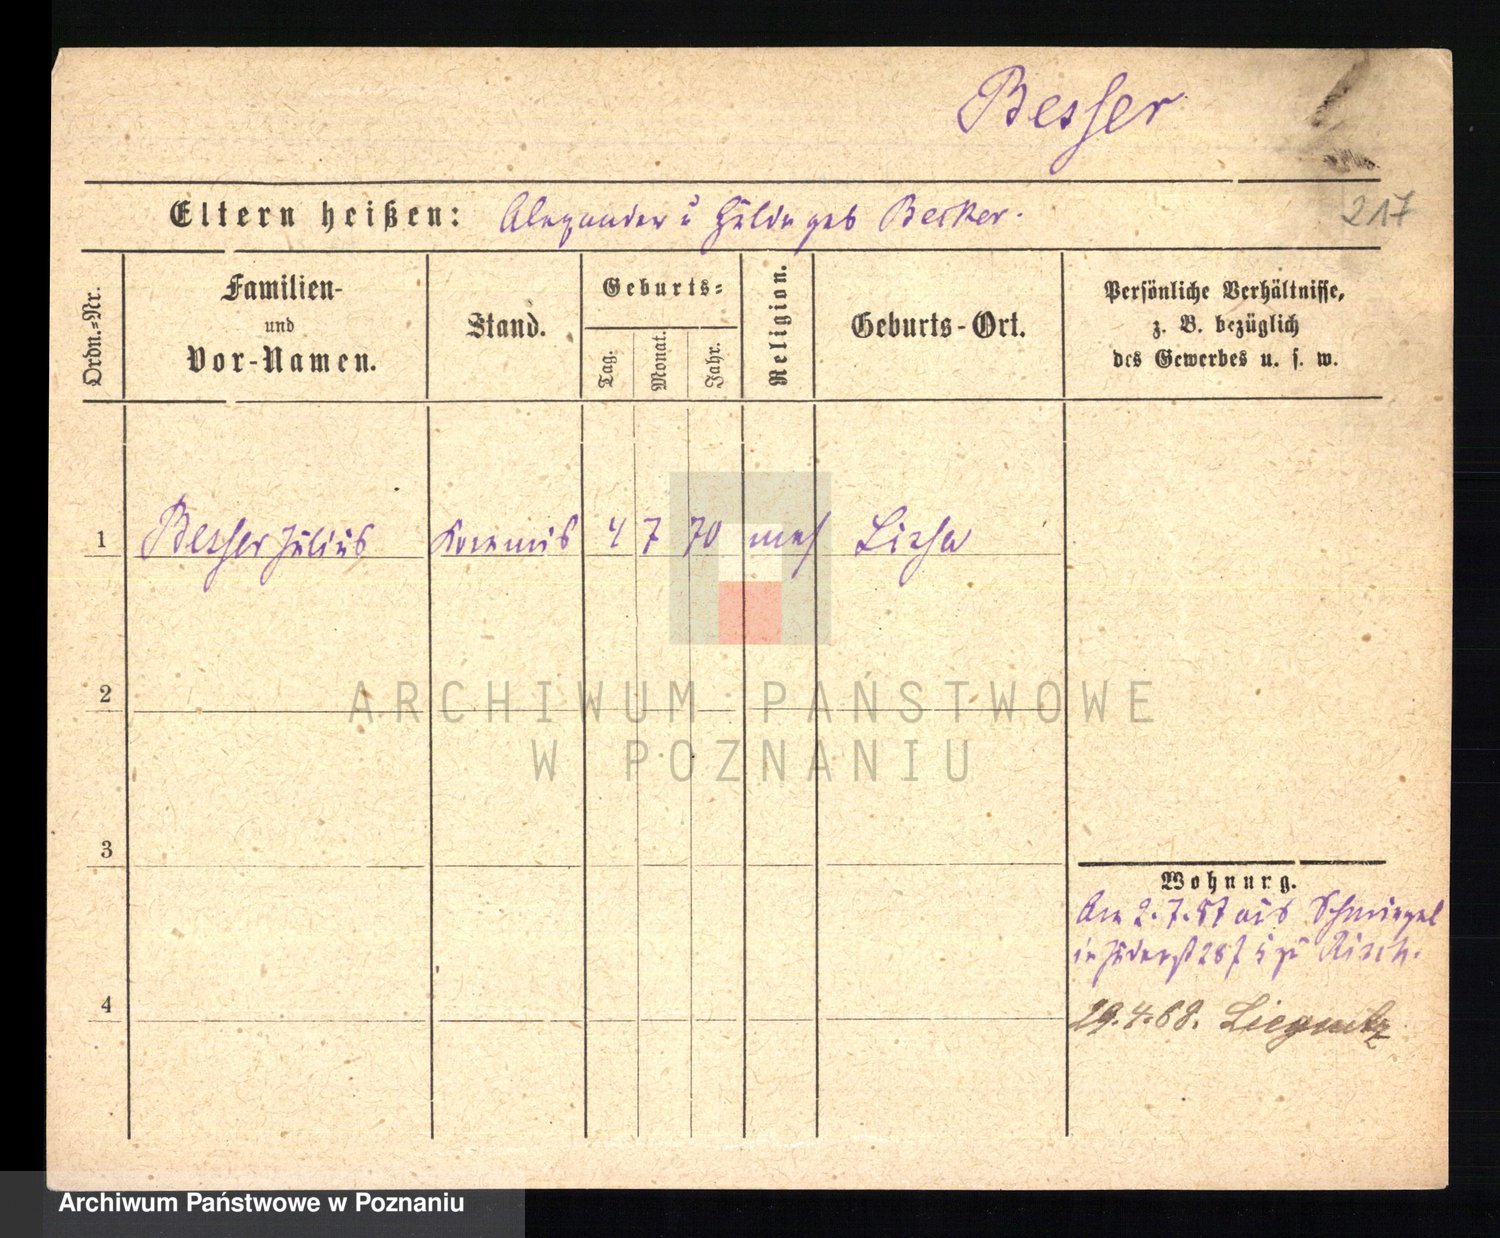 Besser
Eltern heißen: Alexander u Hulda geb Becker.
217
Ordn.=Nr.
Familien-
und
Vor-Namen.
Stand.
Geburts=
Tag.
Monat.
Jahr.
Religion.
Geburts-Ort.
Persönliche Verhältnisse,
z. B. bezüglich
des Gewerbes u. s. w.
1 Besser Julius Kommis 4 7 70 mos Lissa
2
3
4
Wohnung.
Am 2.7.87 aus Schmiegel
in 287 5 zu Kirsch.
29.4.88. Liegnitz
ARCHIWUM PAŃSTWOWE
W POZNANIU
Archiwum Państwowe w Poznaniu